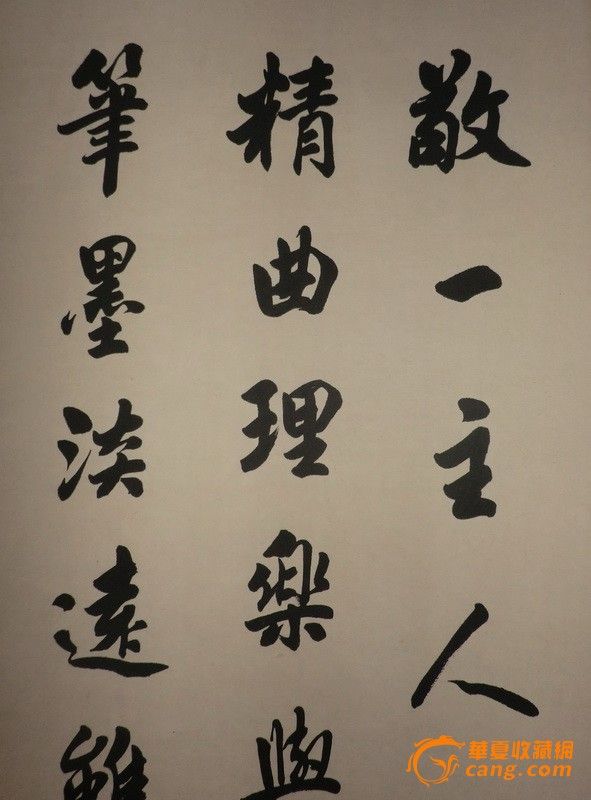 敬一主人
精曲理樂
筆墨淡遠雖
華夏收藏網
cang.com